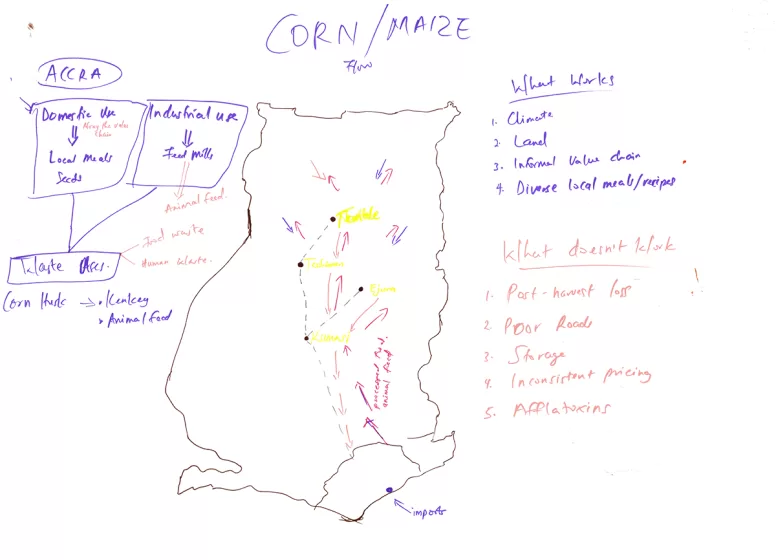 CORN/MAIZE
Flow
ACCRA
Domestic Use
Along the value
chain
Local Meals
Seeds
Industrial use
Feed Mills
Animal feed.
Food waste
Human Waste.
Waste
Corn Husk → • Kenkey
• Animal Food
What Works
1. Climate
2. Land
3. Informal Value chain
4. Diverse local meals/recipes
What doesn't Work
1. Post-harvest loss
2. Poor Roads
3. Storage
4. Inconsistent pricing
5. Afflatoxins
!
Ejura
processed food,
animal feed
imports